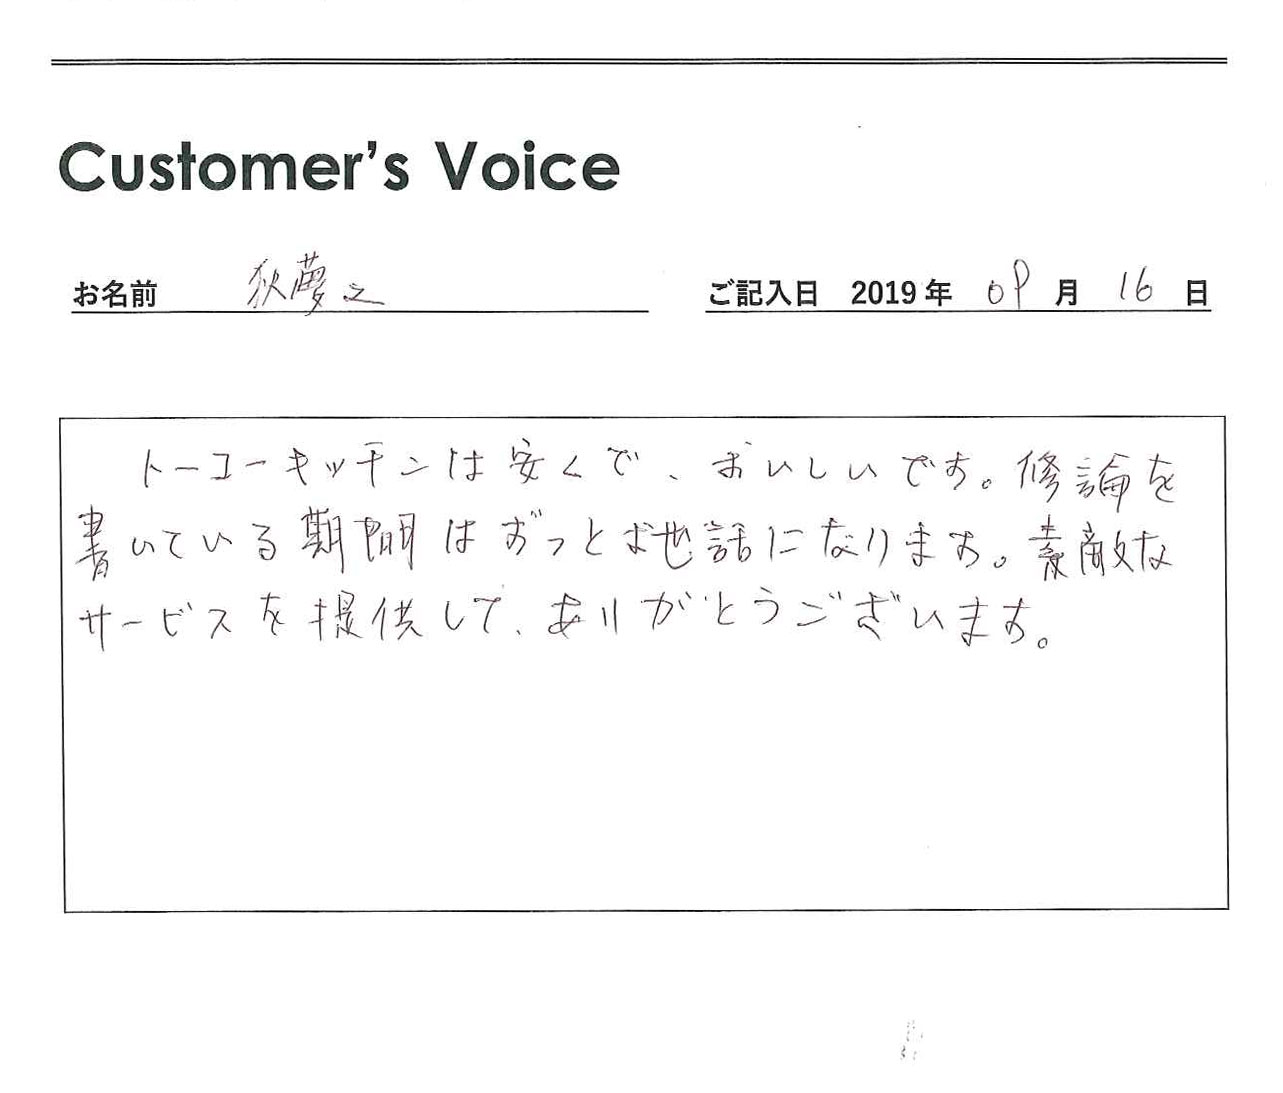 Customer's Voice
お名前 狄夢之 ご記入日 2019年 09月 16日
トーコーキッチンは安くで、おいしいです。修論を
書いている期間はずっとお世話になります。素敵な
サービスを提供して、ありがとうございます。